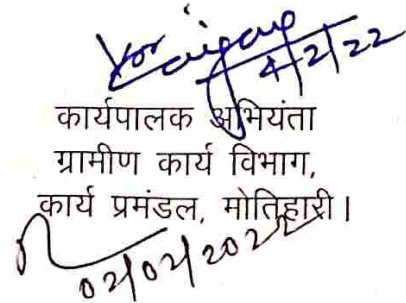 4/2/22
कार्यपालक अभियंता
ग्रामीण कार्य विभाग,
कार्य प्रमंडल, मोतिहारी।
02/02/2022